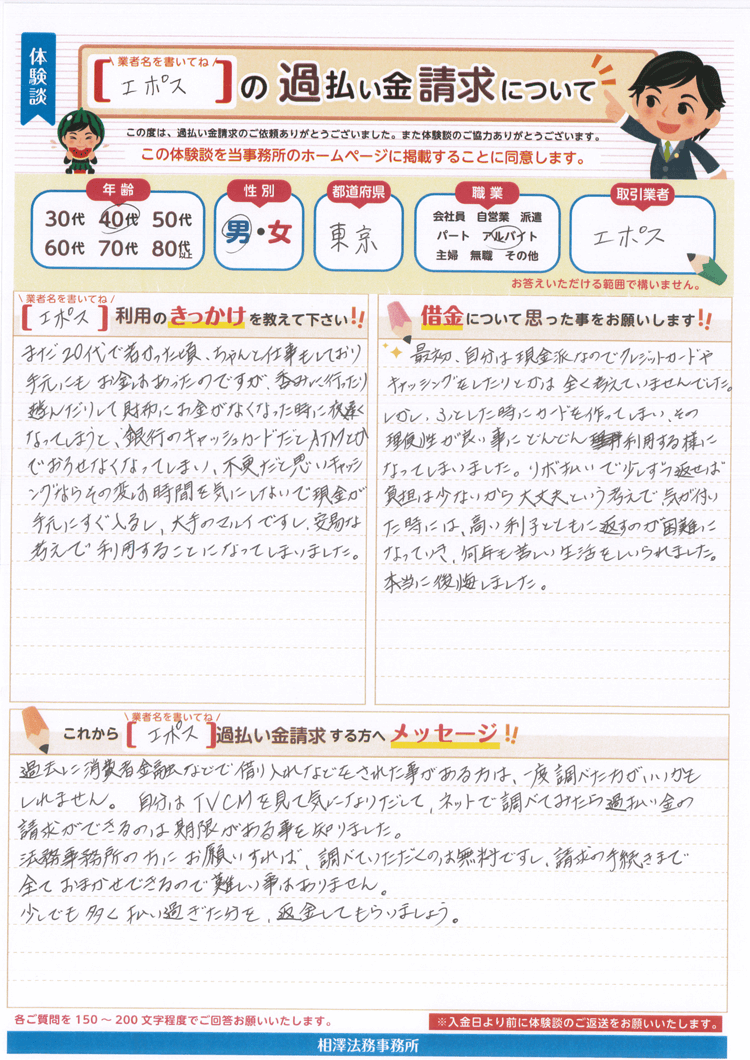 体験談
業者名を書いてね
[エポス]の過払い金請求について
この度は、過払い金請求のご依頼ありがとうございました。また体験談のご協力ありがとうございます。
この体験談を当事務所のホームページに掲載することに同意します。
年齢
30代 40代 50代
60代 70代 80代以上
性別
男・女
都道府県
東京
職業
会社員 自営業 派遣
パート アルバイト
主婦 無職 その他
取引業者
エポス
お答えいただける範囲で構いません。
業者名を書いてね
[エポス]利用のきっかけを教えて下さい!!
まだ20代で若かった頃、ちゃんと仕事もしており
手元にもお金はあったのですが、呑みに行ったり
遊んだりして財布にお金がなくなった時に夜遅く
なってしまうと、銀行のキャッシュカードだとATMとか
でおろせなくなってしまい、不便だと思いキャッシ
ングならその変は時間を気にしないで現金が
手元にすぐ入るし、大手のマルイですし、安易な
考えで利用することになってしまいました。
借金について思った事をお願いします!!
最初、自分は現金派なのでクレジットカードや
キャッシングをしたりとかは全く考えていませんでした。
しかし、ふとした時にカードを作ってしまい、その
利便性が良い事にどんどん利用する様に
なってしまいました。リボ払いで少しずつ返せば
負担は少ないから大丈夫という考えで気が付い
た時には、高い利子とともに返すのが困難に
なっていき、何年も苦しい生活をしいられました。
本当に後悔しました。
業者名を書いてね
これから[エポス]過払い金請求する方へメッセージ!!
過去に消費者金融などで借り入れなどをされた事がある方は、一度調べた方がいいかも
しれません。 自分はTVCMを見て気になりだして、ネットで調べてみたら過払い金の
請求ができるのは期限がある事を知りました。
法務事務所の方にお願いすれば、調べていただくのは無料ですし、請求の手続きまで
全ておまかせできるので難しい事はありません。
少しでも多く払い過ぎた分を、返金してもらいましょう。
各ご質問を150〜200文字程度でご回答お願いいたします。
※入金日より前に体験談のご返送をお願いいたします。
相澤法務事務所